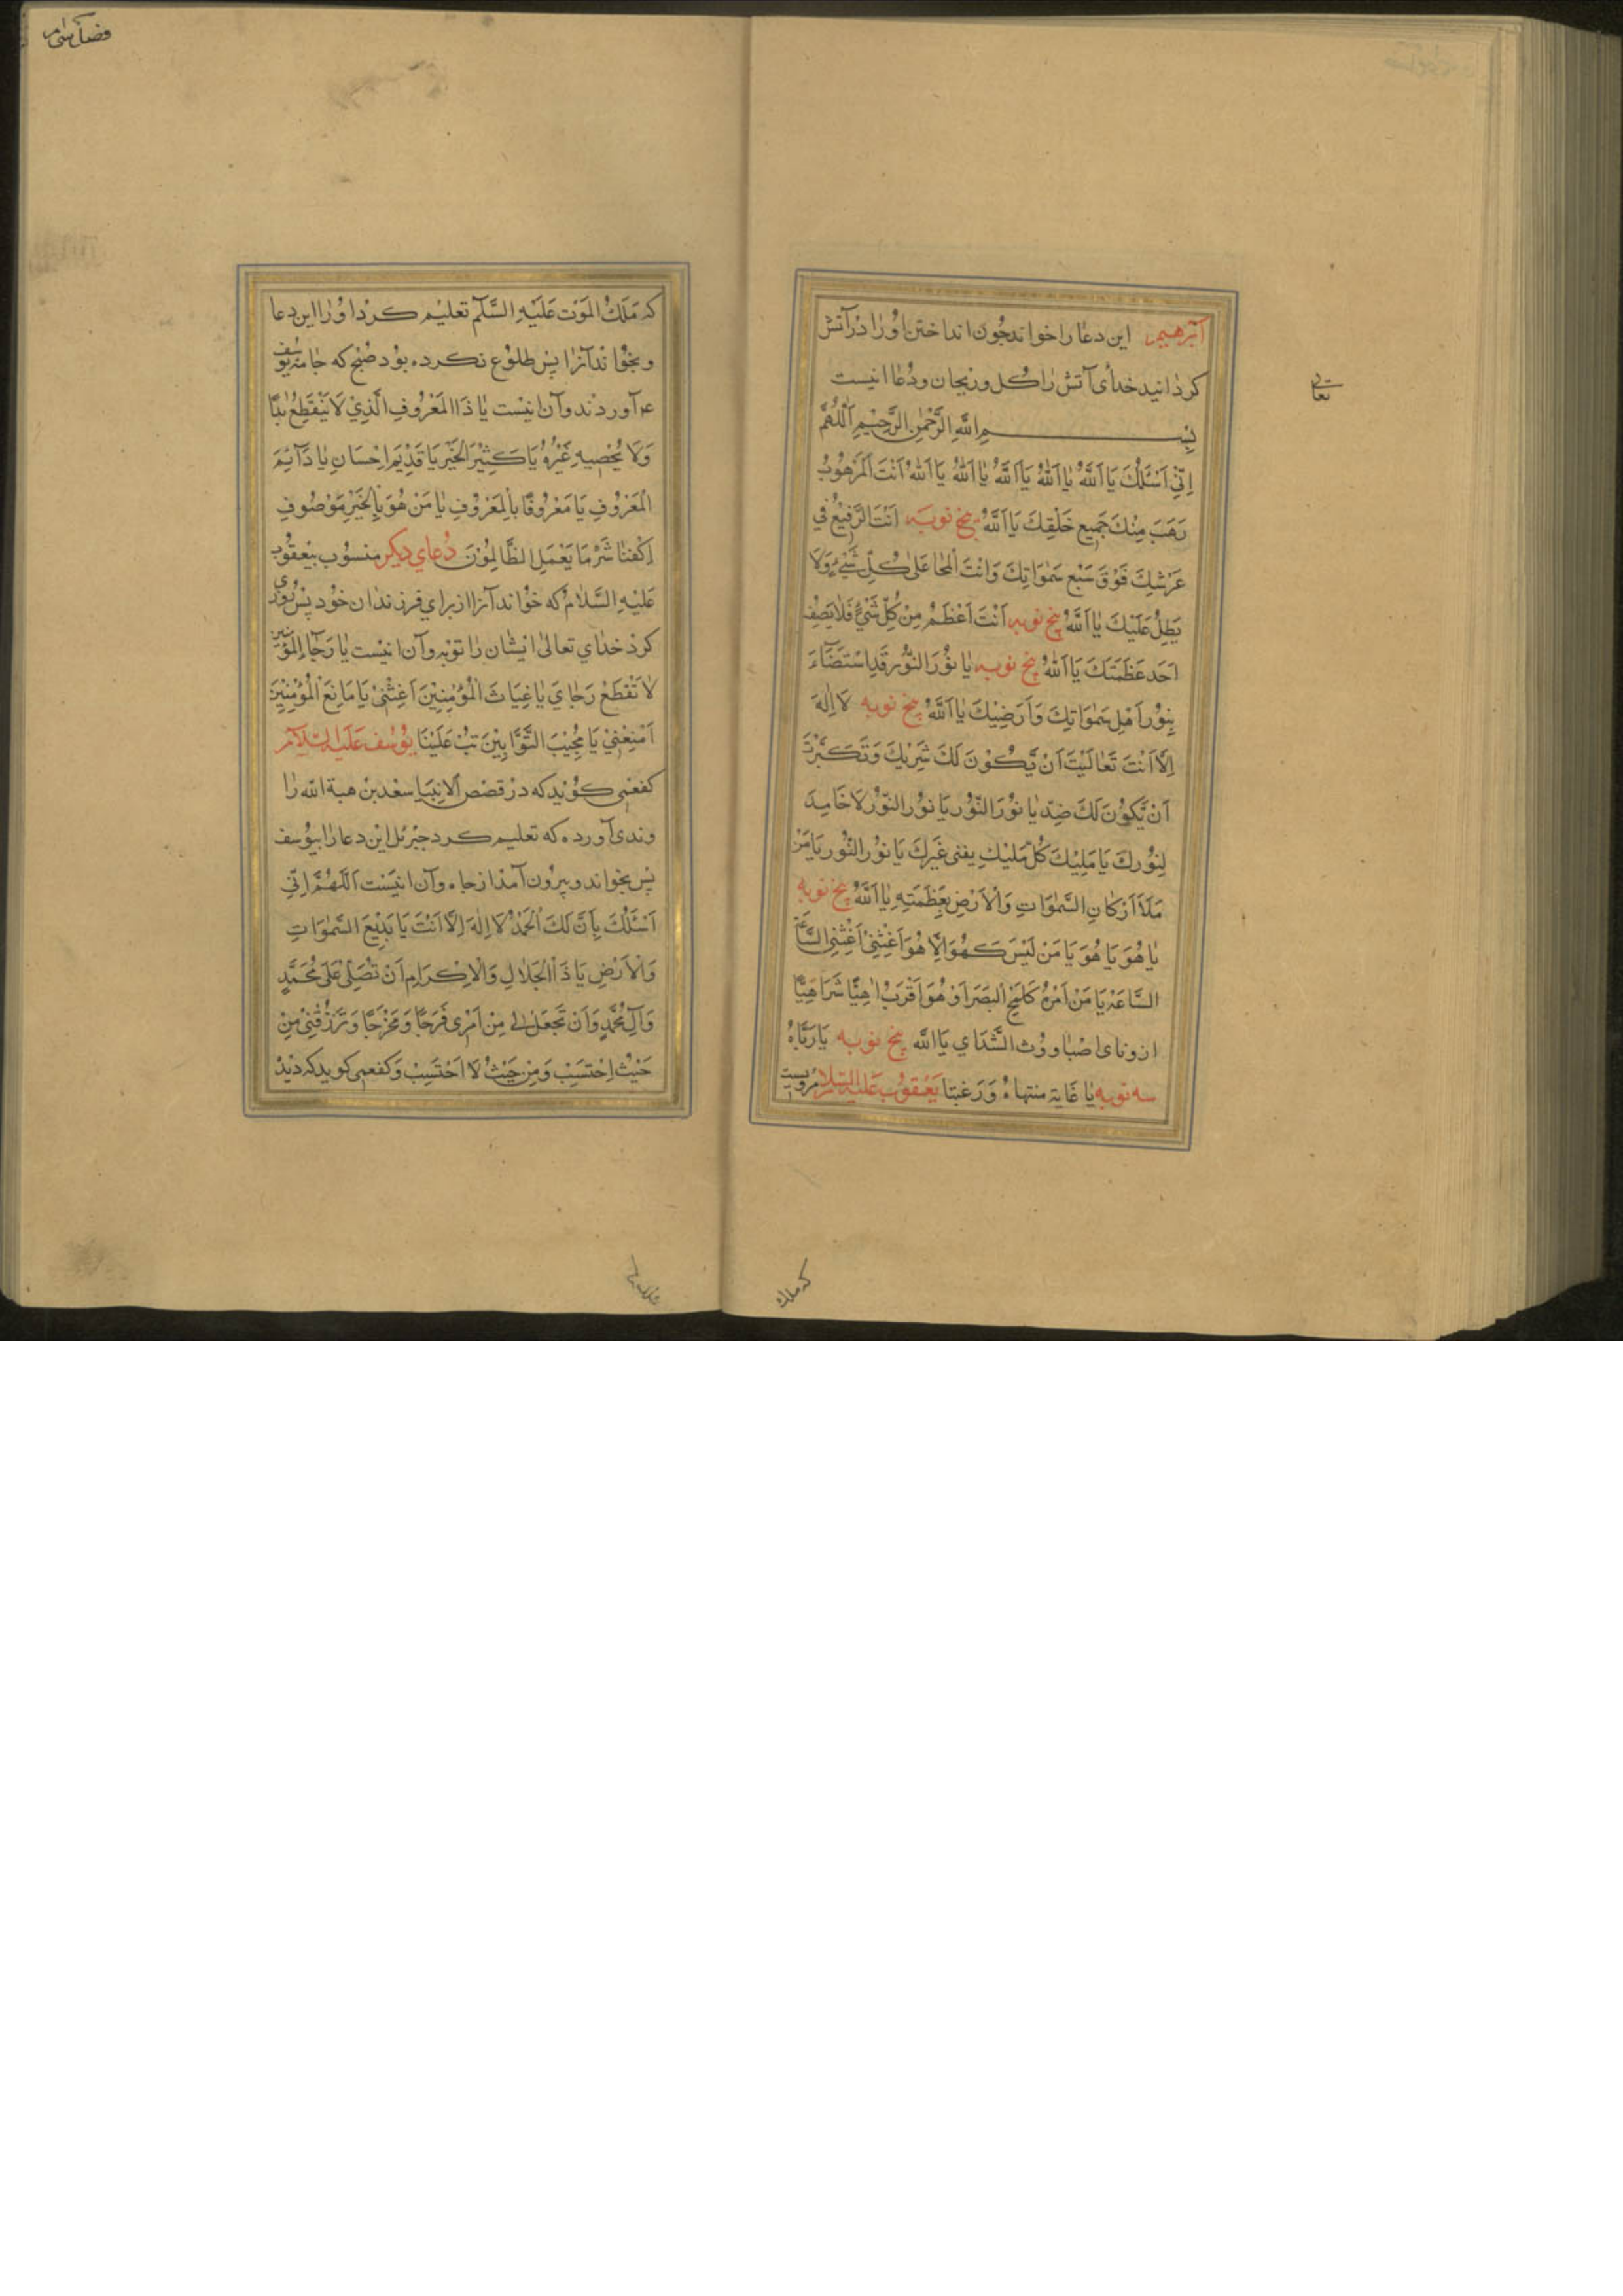 ابرهیم این دعا را خواند چون انداختن اورا در آتش
کردانید خدای آتش را کل و ریحان و دعا اینست
تعالی
بِسْمِ اللهِ الرَّحْمٰنِ الرَّحِیْمِ اَللّٰهُمَّ
اِنِّیْ اَسْئَلُكَ یَا اَللّٰهُ یَا اَللّٰهُ یَا اَللّٰهُ یَا اَللّٰهُ یَا اَللّٰهُ اَنْتَ الْمَرْهُوْبُ
رَهَبَ مِنْكَ جَمِیعِ خَلْقِكَ یَا اَللّٰهُ پنج نوبه اَنْتَ الرَّفِیْعُ فِی
عَرْشِكَ فَوْقَ سَبْعِ سَمٰوَاتِكَ وَاَنْتَ عَلٰی كُلِّ شَیْءٍ وَلَا
یَظِلُّ عَلَیْكَ یَا اَللّٰهُ پنج نوبه اَنْتَ اَعْظَمُ مِنْ كُلِّ شَیْءٍ فَلَا یَصِفُ
اَحَدٌ عَظَمَتَكَ یَا اَللّٰهُ پنج نوبه یَا نُوْرَ النُّوْرِ قَدِ اسْتَضَآءَ
بِنُوْرِ اَهْلِ سَمٰوَاتِكَ وَاَرَضِیْكَ یَا اَللّٰهُ پنج نوبه لَا اِلٰهَ
اِلَّا اَنْتَ تَعَالَیْتَ اَنْ یَّكُوْنَ لَكَ شَرِیْكَ وَتَكَبَّرْتَ
اَنْ یَّكُوْنَ لَكَ ضِدٌّ یَا نُوْرَ النُّوْرِ یَا نُوْرَ النُّوْرِ لَا خَامِدَ
لِنُوْرِكَ یَا مَلِیْكَ كُلِّ مَلِیْكٍ یفنی غَیْرِكَ یَا نُوْرَ النُّوْرِ یَا مَنْ
مَلَاَ اَرْكَانِ السَّمٰوَاتِ وَالْاَرْضِ بِعَظَمَتِهِ یَا اَللّٰهُ پنج نوبه
یَا هُوَ یَا هُوَ یَا مَنْ لَیْسَ كَهُوَ اِلَّا هُوَ اَغِثْنِیْ اَغِثْنِیْ السَّاعَةَ
السَّاعَةَ یَا مَنْ اَمْرُهُ كَلَمْحِ الْبَصَرِ اَوْ هُوَ اَقْرَبُ اٰهِیًّا شَرَاهِیًّا
ازونای اصْبَاوُوْث الشَّدَای یَا اَللّٰه پنج نوبه یَا رَبَّاهُ
سه نوبه یَا غَایَة منتهاهُ وَرَغبتا یَعْقُوْب عَلَیْهِ السَّلَام مرویست
که ملك
فضل سی ام
که مَلَكُ الْمَوْت عَلَیْهِ السَّلٰم تعلیم کرد اورا این دعا
و بخواند آنرا پس طلوع نکرده بود صبح که جامه یوسف
ع م آوردند و آن اینست یَا ذَا الْمَعْرُوْفِ الَّذِیْ لَا یَنْقَطِعُ اَبَدًا
وَلَا یُحْصِیهِ غَیْرُهُ یَا كَثِیْرَ الْخَیْرِ یَا قَدِیْمَ اِحْسَانِ یَا دَآئِمَ
الْمَعْرُوْفِ یَا مَعْرُوْفًا بِالْمَعْرُوْفِ یَا مَنْ هُوَ بِالْخَیْرِ مَوْصُوْفِ
اِكْفِنَا شَرَّ مَا یَعْمَلِ الظَّالِمُوْنَ دُعای دیکر منسوب بیعقوب
عَلَیْهِ السَّلَامُ که خواند آنرا از برای فرزندان خود پس روزی
کرد خدای تعالی ایشان را توبه و آن اینست یَا رَجَآءَ الْمُؤْمِنِیْنَ
لَا تَقْطَعْ رَجَایَ یَا غِیَاثَ الْمُؤْمِنِیْنَ اَغِثْنِیْ یَا مَانِعَ الْمُؤْمِنِیْنَ
اَمْنِعْنِیْ یَا مُجِیْبَ التَّوَّابِیْنَ تُبْ عَلَیْنَا یُوْسُف عَلَیْهِ السَّلَام
کفعمی کوید که در قصص الانبیا سعد بن هبة الله را
وندی آورده که تعلیم کرد جبرئل این دعا را بیوسف
پس بخواند و بیرون آمد از چاه و آن اینست اَللّٰهُمَّ اِنِّیْ
اَسْئَلُكَ بِاَنَّ لَكَ الْحَمْدُ لَا اِلٰهَ اِلَّا اَنْتَ یَا بَدِیْعَ السَّمٰوَاتِ
وَالْاَرْضِ یَا ذَا الْجَلَالِ وَالْاِكْرَامِ اَنْ تُصَلِّیْ عَلٰی مُحَمَّدٍ
وَآلِ مُحَمَّدٍ وَاَنْ تَجْعَلَ لِیْ مِنْ اَمْرِیْ فَرَجًا وَمَخْرَجًا وَتَرْزُقْنِیْ مِنْ
حَیْثُ اِحْتَسِبْ وَمِنْ حَیْثُ لَا اَحْتَسِبْ و کفعمی کوید که دید